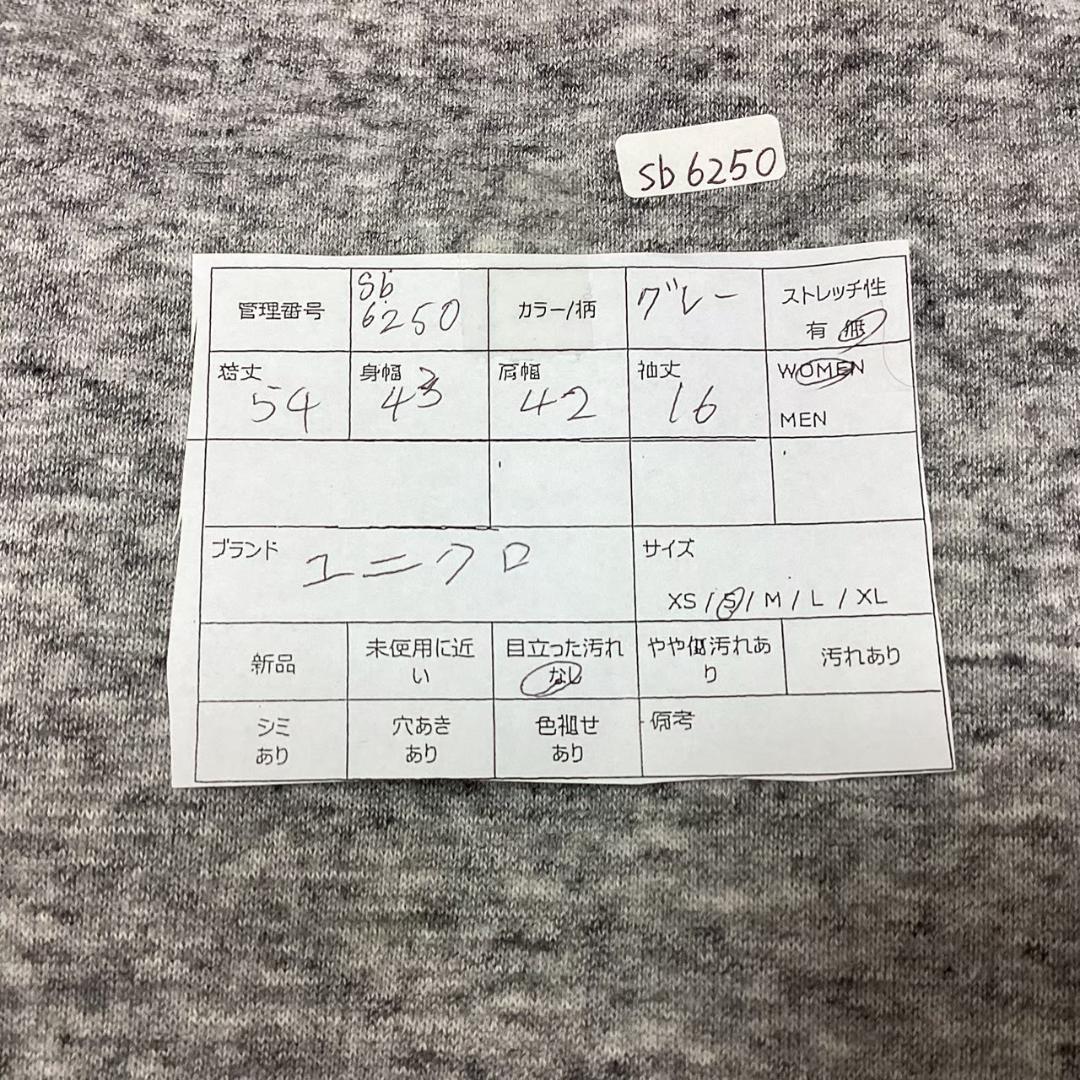 sb 6250
管理番号
sb
6250
カラー/柄
グレー
ストレッチ性
有 無
着丈
54
身幅
43
肩幅
42
袖丈
16
WOMEN
MEN
ブランド
ユニクロ
サイズ
XS / S / M / L / XL
新品
未使用に近
い
目立った汚れ
なし
やや傷汚れあ
り
汚れあり
シミ
あり
穴あき
あり
色褪せ
あり
備考